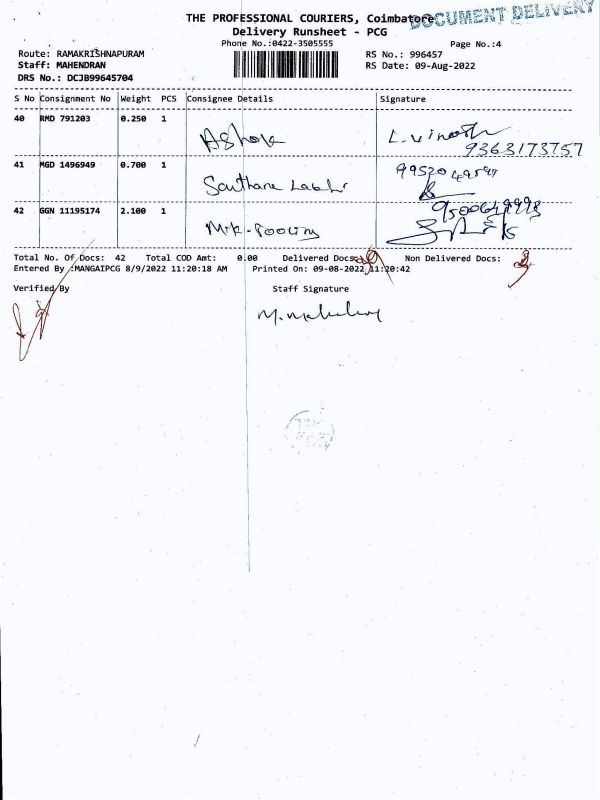 THE PROFESSIONAL COURIERS, Coimbatore
DOCUMENT DELIVERY
Delivery Runsheet - PCG
Phone No.:0422-3505555
Page No.:4
Route: RAMAKRISHNAPURAM
RS No.: 996457
Staff: MAHENDRAN
RS Date: 09-Aug-2022
DRS No.: DCJB99645704
S No Consignment No Weight PCS Consignee Details Signature
40 RMD 791203 0.250 1
Ashok L. Vinoth
9363173757
41 MGD 1496949 0.700 1
42 GGN 11195174 2.100 1
Total No. Of Docs: 42 Total COD Amt: 0.00 Delivered Docs: Non Delivered Docs:
Entered By :MANGAIPCG 8/9/2022 11:20:18 AM Printed On: 09-08-2022 11:20:42
Verified By Staff Signature